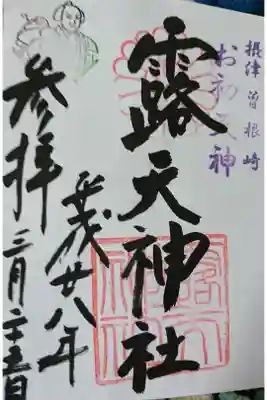 摂津曽根崎
お初天神
露天神社
平成廿八年
参拝
三月二十五日